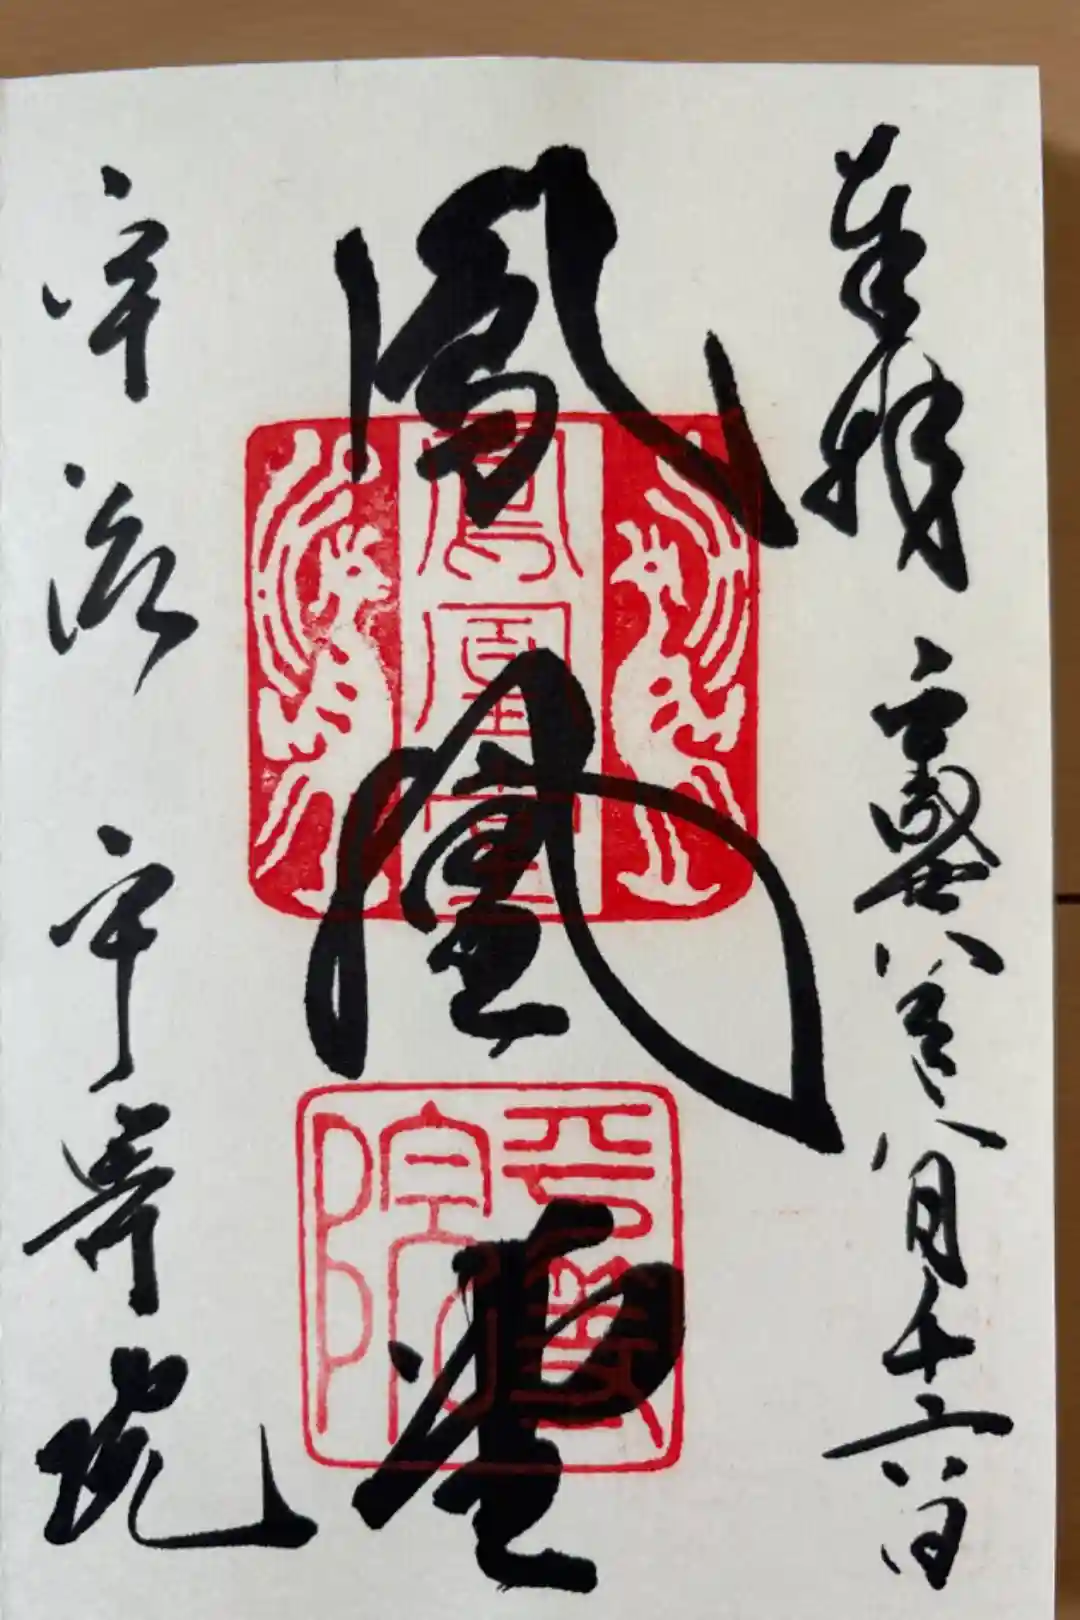 奉拝 平成廿八年八月十六日
鳳凰堂
宇治 平等院
鳳凰堂
平等院